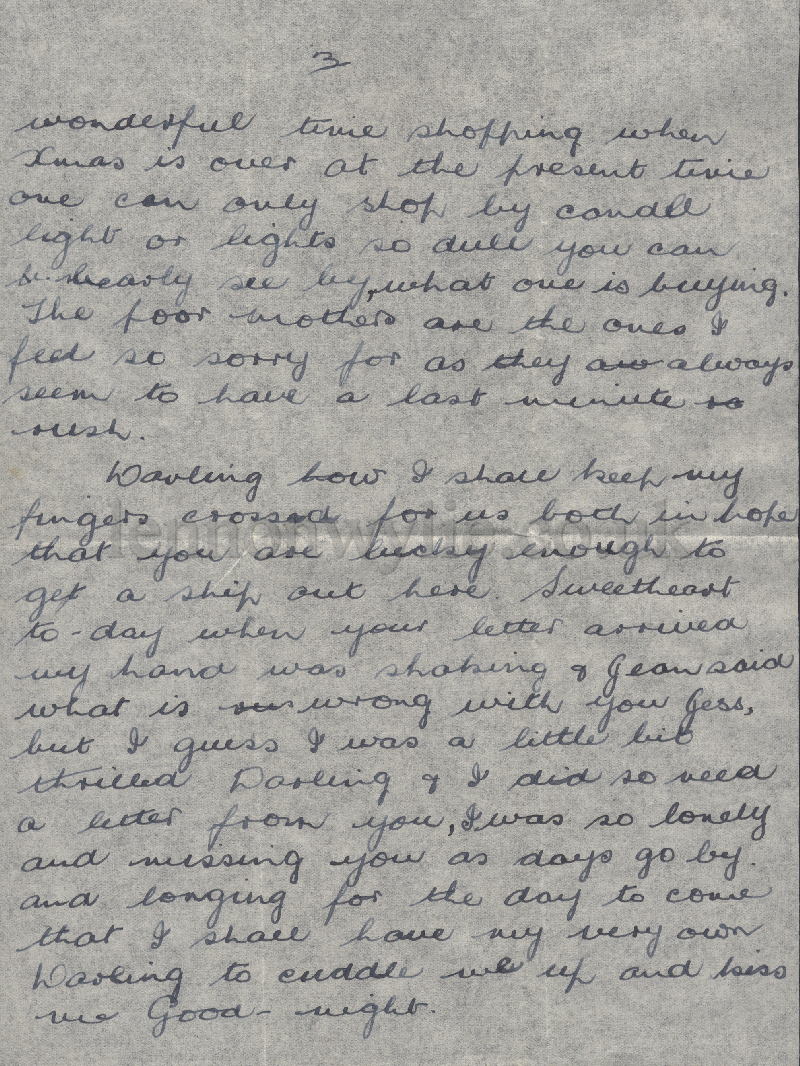 3
wonderful time shopping when
Xmas is over at the present time
one can only shop by candle
light or lights so dull you can
hearly see by, what one is buying.
The poor mothers are the ones I
feel so sorry for as they aw always
seem to have a last minute ra
rush.
Darling how I shall keep my
fingers crossed for us both in hope
that you are lucky enough to
get a ship out here. Sweetheart
to-day when your letter arrived
my hand was shaking & Jean said
what is wrong with you Jess,
but I guess I was a little bit
thrilled Darling & I did so need
a letter from you, I was so lonely
and missing you as days go by.
and longing for the day to come
that I shall have my very own
Darling to cuddle me up and kiss
me Good-night.
lennonwylie.co.uk